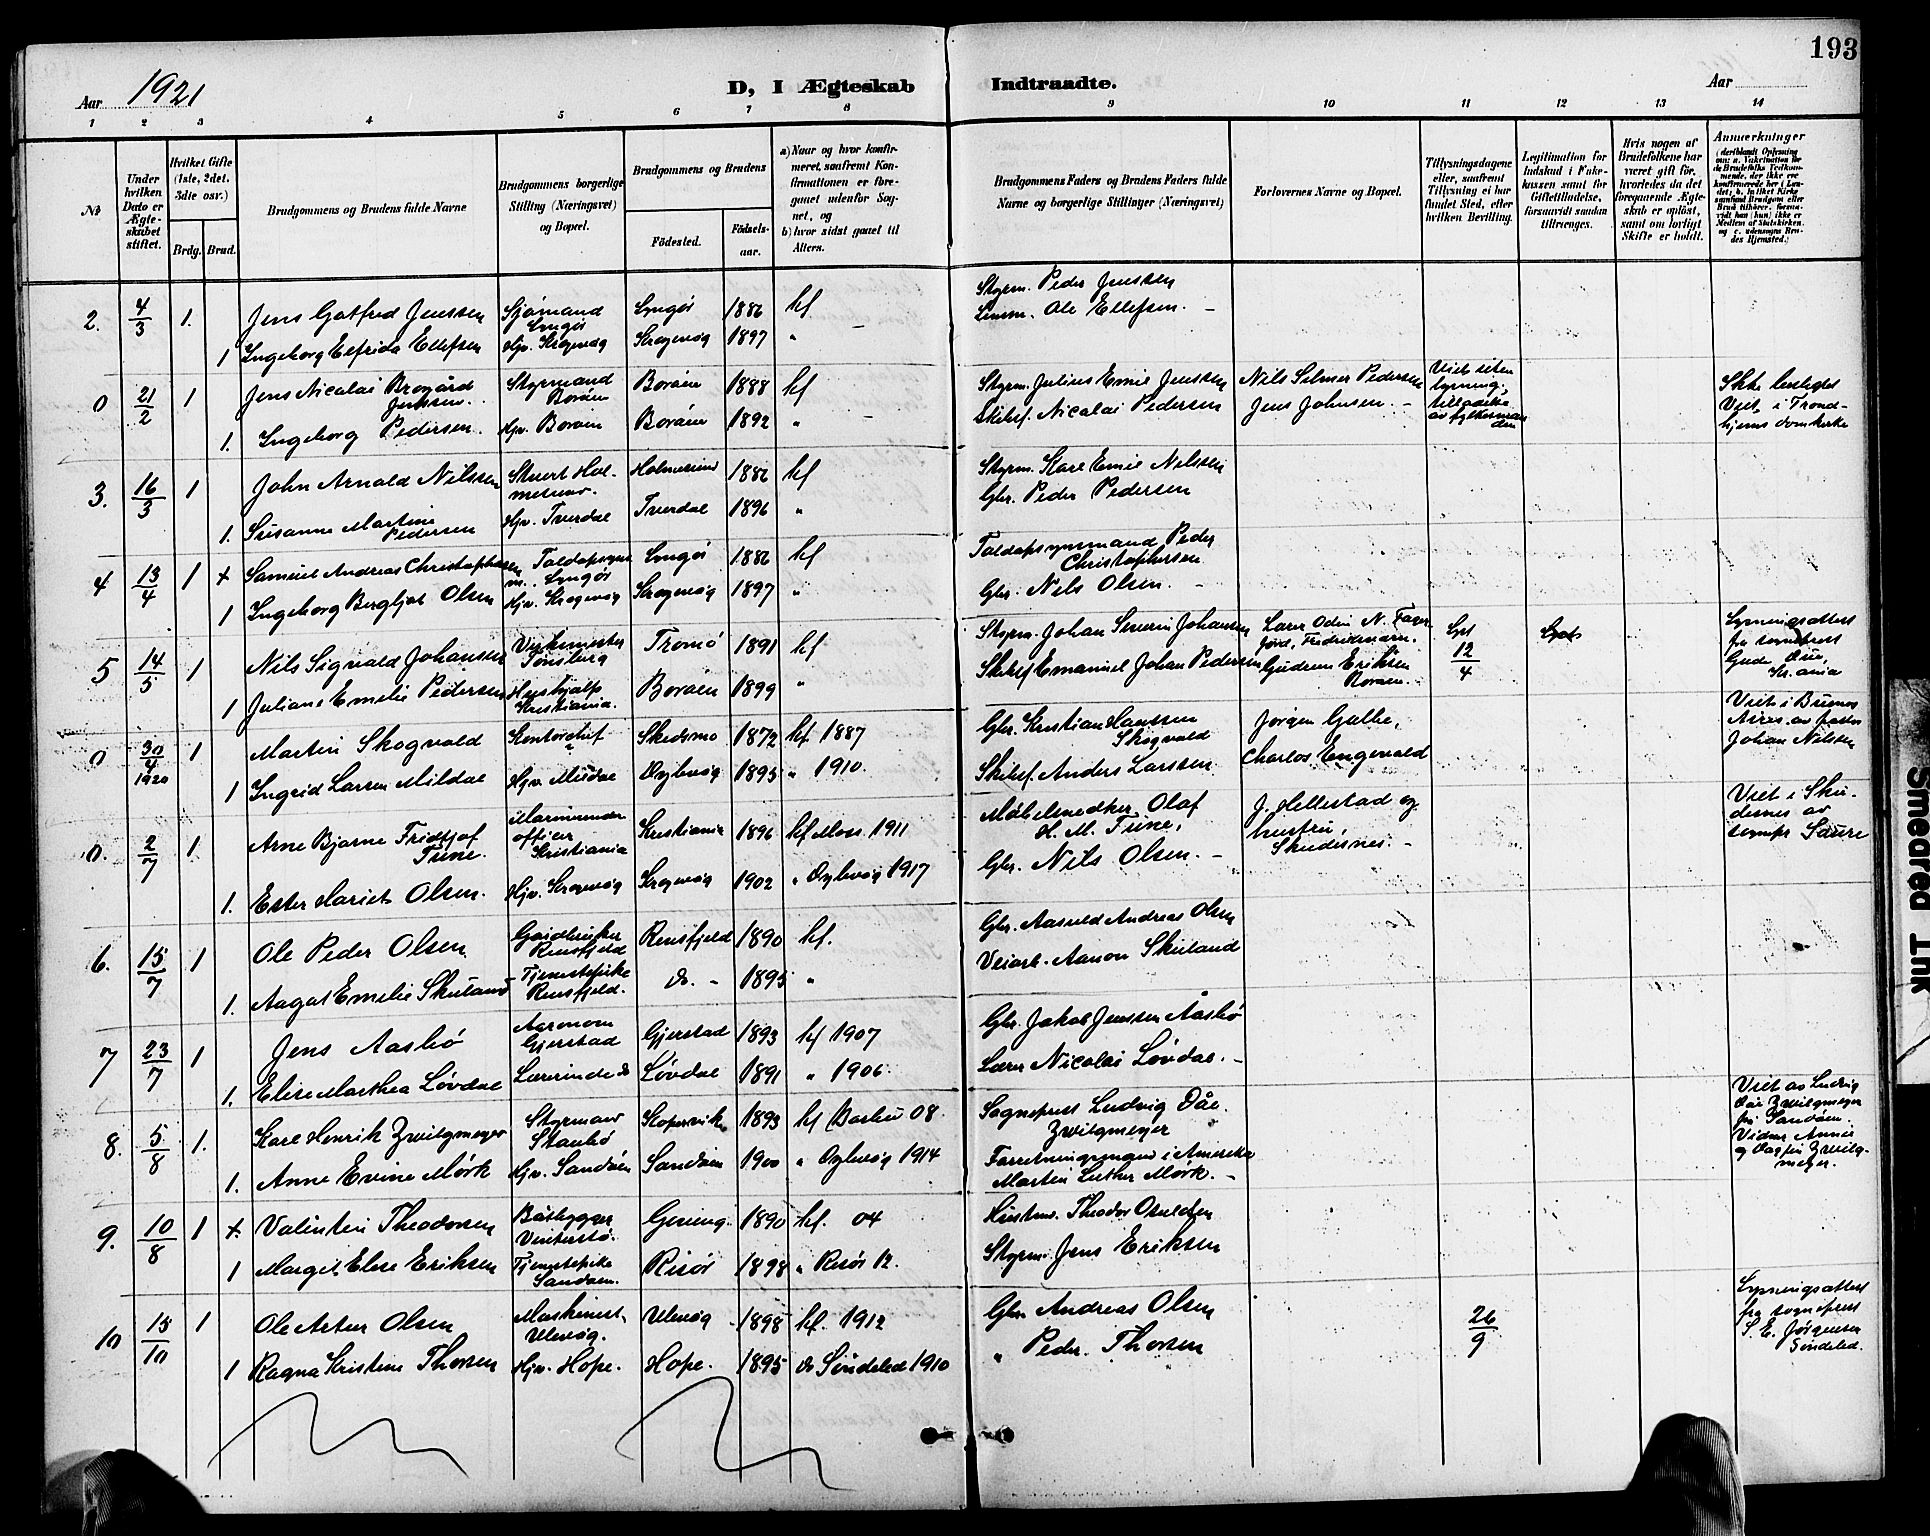 193
Aar 1921
D, I Ægteskab Indtraadte.
Aar
1 2 3 4 5 6 7 8 9 10 11 12 13 14
№
Under hvilken Dato er Ægteskabet stiftet.
Hvilket Gifte (1ste, 2det. 3die osv.)
Brdg. Brud.
Brudgommens og Brudens fulde Navne
Brudgommens borgerlige Stilling (Næringsvei) og Bopæl.
Brudgommens og Brudens
Fødested.
Fødselsaar.
a) Naar og hvor konfirmeret, saafremt Konfirmationen er foregaaet udenfor Sognet, og
b) hvor sidst gaaet til Alters.
Brudgommens Faders og Brudens Faders fulde Navne og borgerlige Stillinger (Næringsvei)
Forlovernes Navne og Bopæl.
Tillysningsdagene eller, saafremt Tillysning ei har fundet Sted, efter hvilken Bevilling.
Legitimation for Indskud i Enkekassen samt for Giftetilladelse, forsaavidt saadan tiltrænges.
Hvis nogen af Brudefolkene har været gift før, hvorledes da det foregaaende Ægteskab er opløst, samt om lovligt Skifte er holdt.
Anmærkninger
2. 4/3 1. Jens Gotfred Jenssen Sjømand Lyngør Lyngør 1886 kf Styrm. Peder Jenssen
1 Ingeborg Elfrida Ellefsen Hjv. Krogevåg Krogevåg 1897 " Ole Ellefsen. –
0 21/2 1 Jens Nicolai Brogård Jenssen. Styrmand Borøen Borøen 1888 kf Styrm. Julius Emil Jenssen Nils Selmer Pedersen Viet uten lysning, Ikke lestedet Viet i Trondhjems domkirke
1. Ingeborg Pedersen. Hjv. Borøen Borøen 1892 " Skibsf. Nicolai Pedersen Jens Johnsen. –
3. 16/3 1 John Arnold Nilssen Stuert Holmesund 1886 kf Styrm. Karl Emil Nilssen
1. Susanne Martine Pedersen Hjv. Tverdal Tverdal 1896 " Gbr. Peder Pedersen
4 13/4 1 + Samuel Andreas Christophersen Lyngør Lyngør 1886 kf Toldopsynsmand Peder Christophersen
1 Ingeborg Bergljot Olsen Hjv. Krogevåg Krogevåg 1897 " Gbr. Nils Olsen. –
5 14/5 1 Nils Sigvald Johansen Verkmester Tønsberg Tromø 1891 kf Styrm. Johan Severin Johansen Lærer Odin N. Lyst 12/4 Lysningsattest fr sogneprest
1 Juliane Emilie Pedersen Hushjælp Kristiania. Borøen 1899 " Skibsf Emanuel Johan Pedersen Gudrun Eriksen Borøen.
0 30/4 1920 1 Martin Skogvald Kontorchef Skedsmo 1872 kf 1887 Gbr. Kristian Hanssen Skogvald Jørgen Galbe, Viet i Buenos Aires av pastor Johan Nilsen
1 Ingrid Larsen Mildal Hjv. Dybvåg 1895 " 1910. Skibsf. Anders Larssen Charlos Engevald
0. 2/7 1. Arne Bjarne Fridtjof Tune. Marineunderofficer Kristiania Kristiania 1896 kf Moss 1911 Møbelsnedker Olaf H. M. Tune, J. Hellestad og hustru, Skudesnes. – Viet i Skudesnes av sognpr Saure
1. Ester Hariet Olsen. Hjv. Krogevåg Krogevåg 1902 " Dybvåg 1917 Gbr. Nils Olsen. –
6. 15/7 1 Ole Peder Olsen Gardbruker Rensfjeld Rensfjeld 1890 kf. Gbr. Aasuld Andreas Olsen
1. Aagot Emelie Skuland Tjenestepike Rensfjeld. do. – 1895 " Veiarb. Aanon Skuland
7 23/7 1 Jens Aasbø Agronom Gjerstad Gjerstad 1893 kf 1907 Gbr. Jakob Jenssen Aasbø
1. Elise Marthea Løvdal Lærerinde do Løvdal 1891 " 1906. Lærer Nicolai Løvdal. –
8. 5/8 1. Karl Henrik Zwilgmeyer Styrmand Staubø Kopervik 1893 kf Barbu 08. Sogneprest Ludvig Dåe Zwilgmeyer Viet av Ludvig Dåe Zwilgmeyer på Sandøen. Vidner Annie og Dagfin Zwilgmeyer.
1. Anne Evine Mørk Hjv. Sandøen Sandøen 1900 " Dybvåg 1914 Forretningsmand i Amerika Martin Luther Mørk. –
9. 10/8 1 +. Valentin Theodorsen Båtbygger 1890 kf. 04 Theodor Osuldsen
1 Margit Elise Eriksen Tjenestepike Sandøen. Risør 1898 " Risør 12. Styrm. Jens Eriksen
10 15/10 1 Ole Artur Olsen Maskinist. Ulevåg. Ulevåg 1898 kf. 1912 Gbr. Andreas Olsen 26/9 Lysningsattest fra sogneprest S. E. Jørgensen Søndeled.
1 Ragna Kristine Thorsen Hjv. Hope. Hope. 1895 do Søndeled 1910 " Peder Thorsen
Smedrød Ink